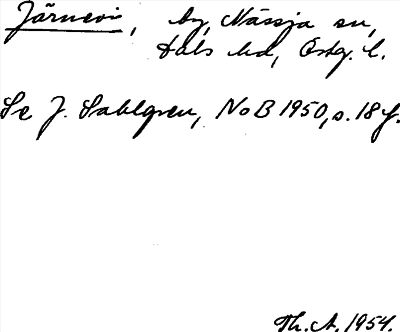 Järnevi, by, Nässja sn,
Dals hd, Östg. l.
Se J. Sahlgren, NoB 1950, s. 18 f.
Th. A. 1954.